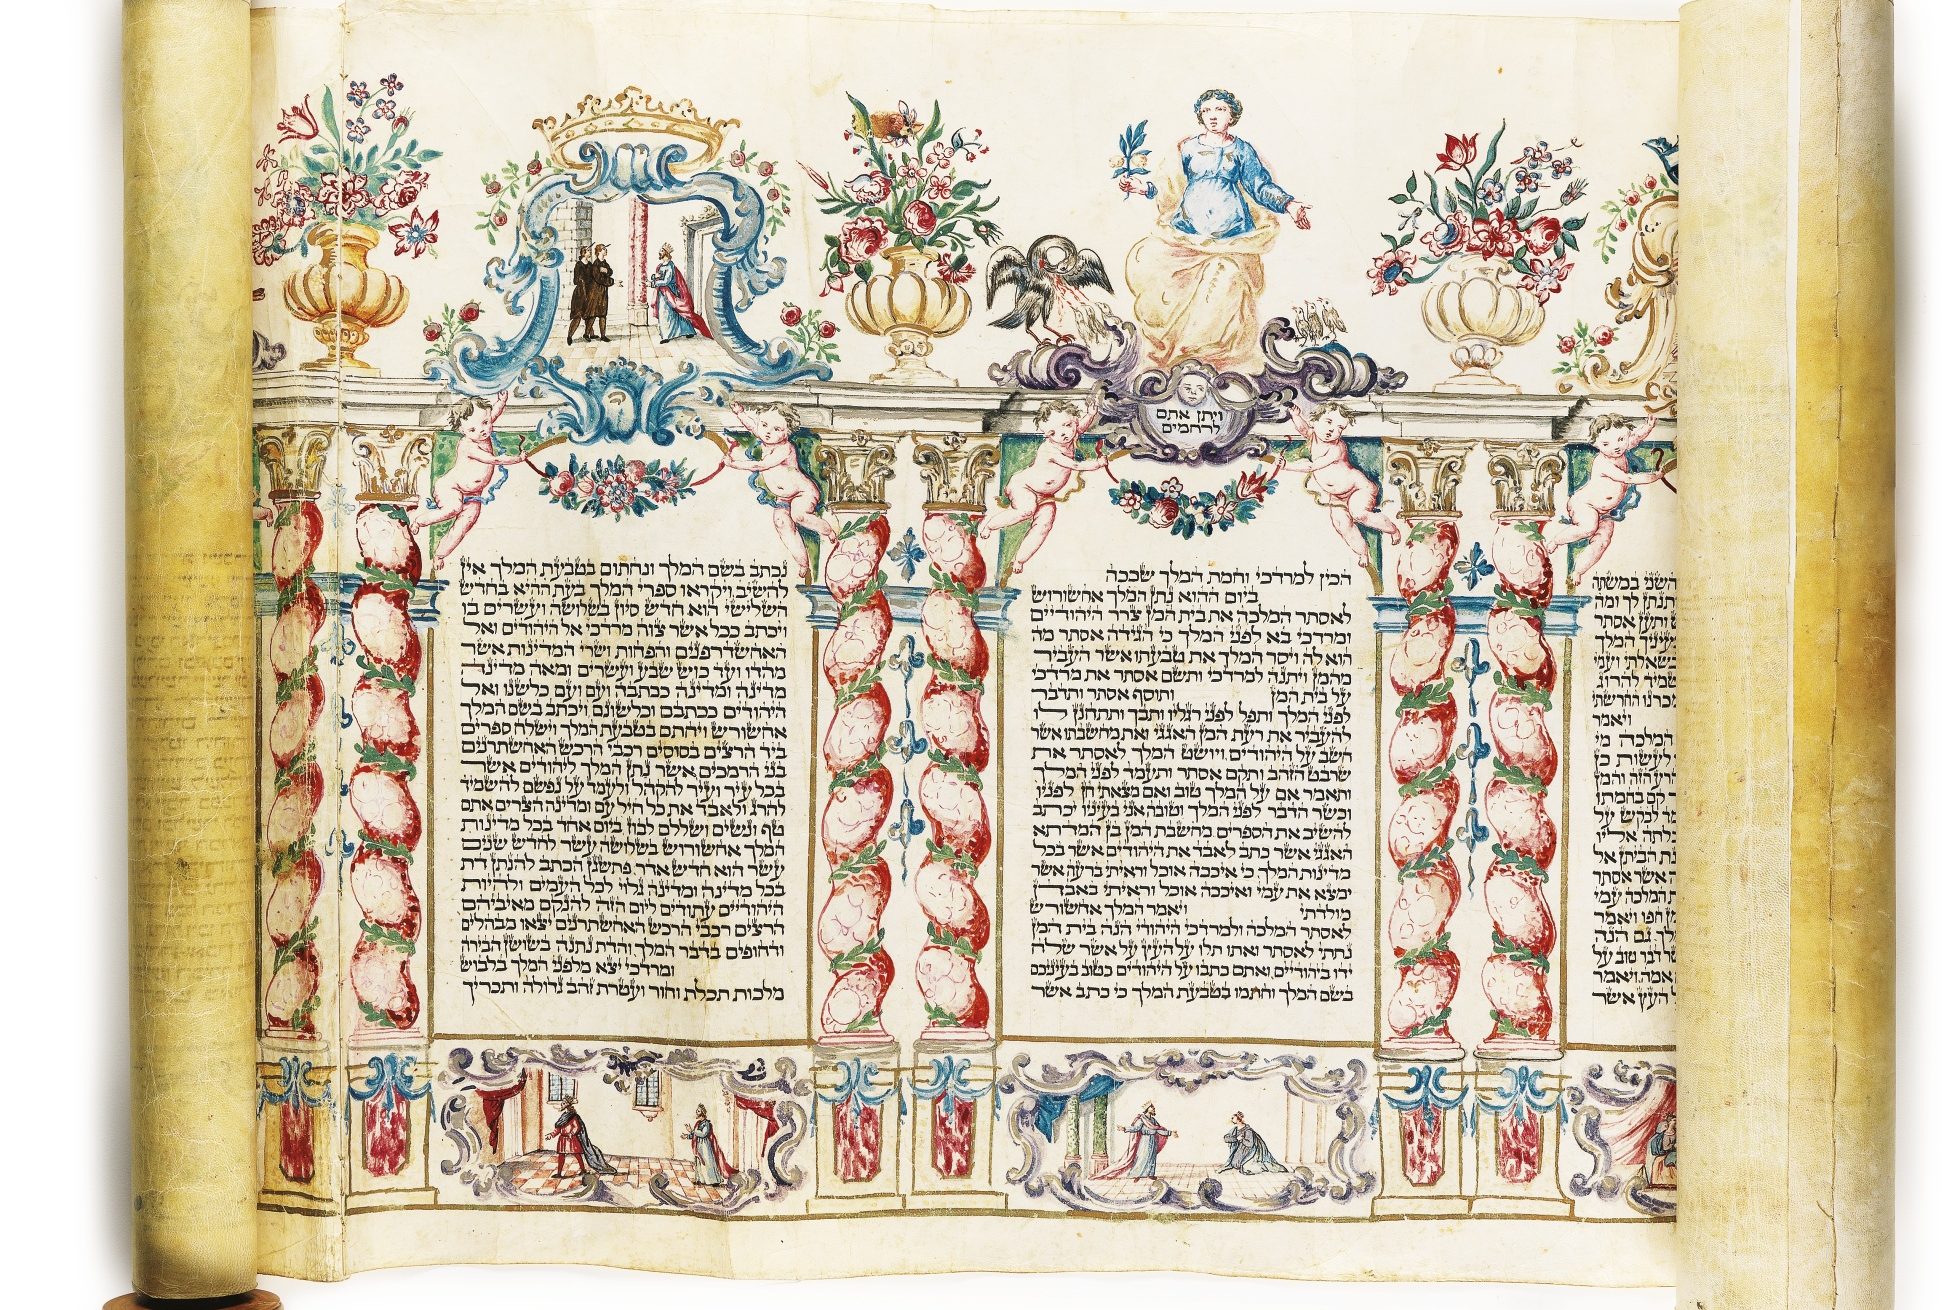 ויתן אתם
לרחמים
השני במשתה
תנתן לך ומה
ותען אסתר
בעיניך המלך
בשאלתי ועמי
להרוג
החרשתי
ויאמר
המלכה מי
לעשות כן
הרע הזה והמן
קם בחמתו
לבקש על
אליו
הביתן אל
אשר אסתר
המלכה עמי
חפו ויאמר
גם הנה
דבר טוב על
ויאמר
העץ אשר
הכין למרדכי וחמת המלך שככה
ביום ההוא נתן המלך אחשורוש
לאסתר המלכה את בית המן צרר היהודיים
ומרדכי בא לפני המלך כי הגידה אסתר מה
הוא לה ויסר המלך את טבעתו אשר העביר
מהמן ויתנה למרדכי ותשם אסתר את מרדכי
על בית המן ותוסף אסתר ותדבר
לפני המלך ותפל לפני רגליו ותבך ותתחנן לו
להעביר את רעת המן האגגי ואת מחשבתו אשר
חשב על היהודים ויושט המלך לאסתר את
שרבט הזהב ותקם אסתר ותעמד לפני המלך
ותאמר אם על המלך טוב ואם מצאתי חן לפניו
וכשר הדבר לפני המלך וטובה אני בעיניו יכתב
להשיב את הספרים מחשבת המן בן המדתא
האגגי אשר כתב לאבד את היהודים אשר בכל
מדינות המלך כי איככה אוכל וראיתי ברעה אשר
ימצא את עמי ואיככה אוכל וראיתי באבדן
מולדתי ויאמר המלך אחשורש
לאסתר המלכה ולמרדכי היהודי הנה בית המן
נתתי לאסתר ואתו תלו על העץ על אשר שלח
ידו ביהודיים ואתם כתבו על היהודים כטוב בעיניכם
בשם המלך וחתמו בטבעת המלך כי כתב אשר
נכתב בשם המלך ונחתום בטבעת המלך אין
להשיב ויקראו ספרי המלך בעת ההיא בחדש
השלישי הוא חדש סיון בשלושה ועשרים בו
ויכתב ככל אשר צוה מרדכי אל היהודים ואל
האחשדרפנים והפחות ושרי המדינות אשר
מהדו ועד כוש שבע ועשרים ומאה מדינה
מדינה ומדינה ככתבה ועם ועם כלשנו ואל
היהודים ככתבם וכלשונם ויכתב בשם המלך
אחשורש ויחתם בטבעת המלך וישלח ספרים
ביד הרצים בסוסים רכבי הרכש האחשתרנים
בני הרמכים אשר נתן המלך ליהודים אשר
בכל עיר ועיר להקהל ולעמד על נפשם להשמיד
להרג ולאבד את כל חיל עם ומדינה הצרים אתם
טף ונשים ושללם לבוז ביום אחד בכל מדינות
המלך אחשורוש בשלושה עשר לחדש שנים
עשר הוא חדש אדר פתשגן הכתב להנתן דת
בכל מדינה ומדינה גלוי לכל העמים ולהיות
היהודיים עתודים ליום הזה להנקם מאיביהם
הרצים רכבי הרכש האחשתרנים יצאו מבהלים
ודחופים בדבר המלך והדת נתנה בשושן הבירה
ומרדכי יצא מלפני המלך בלבוש
מלכות תכלת וחור ועטרת זהב גדולה ותכריך